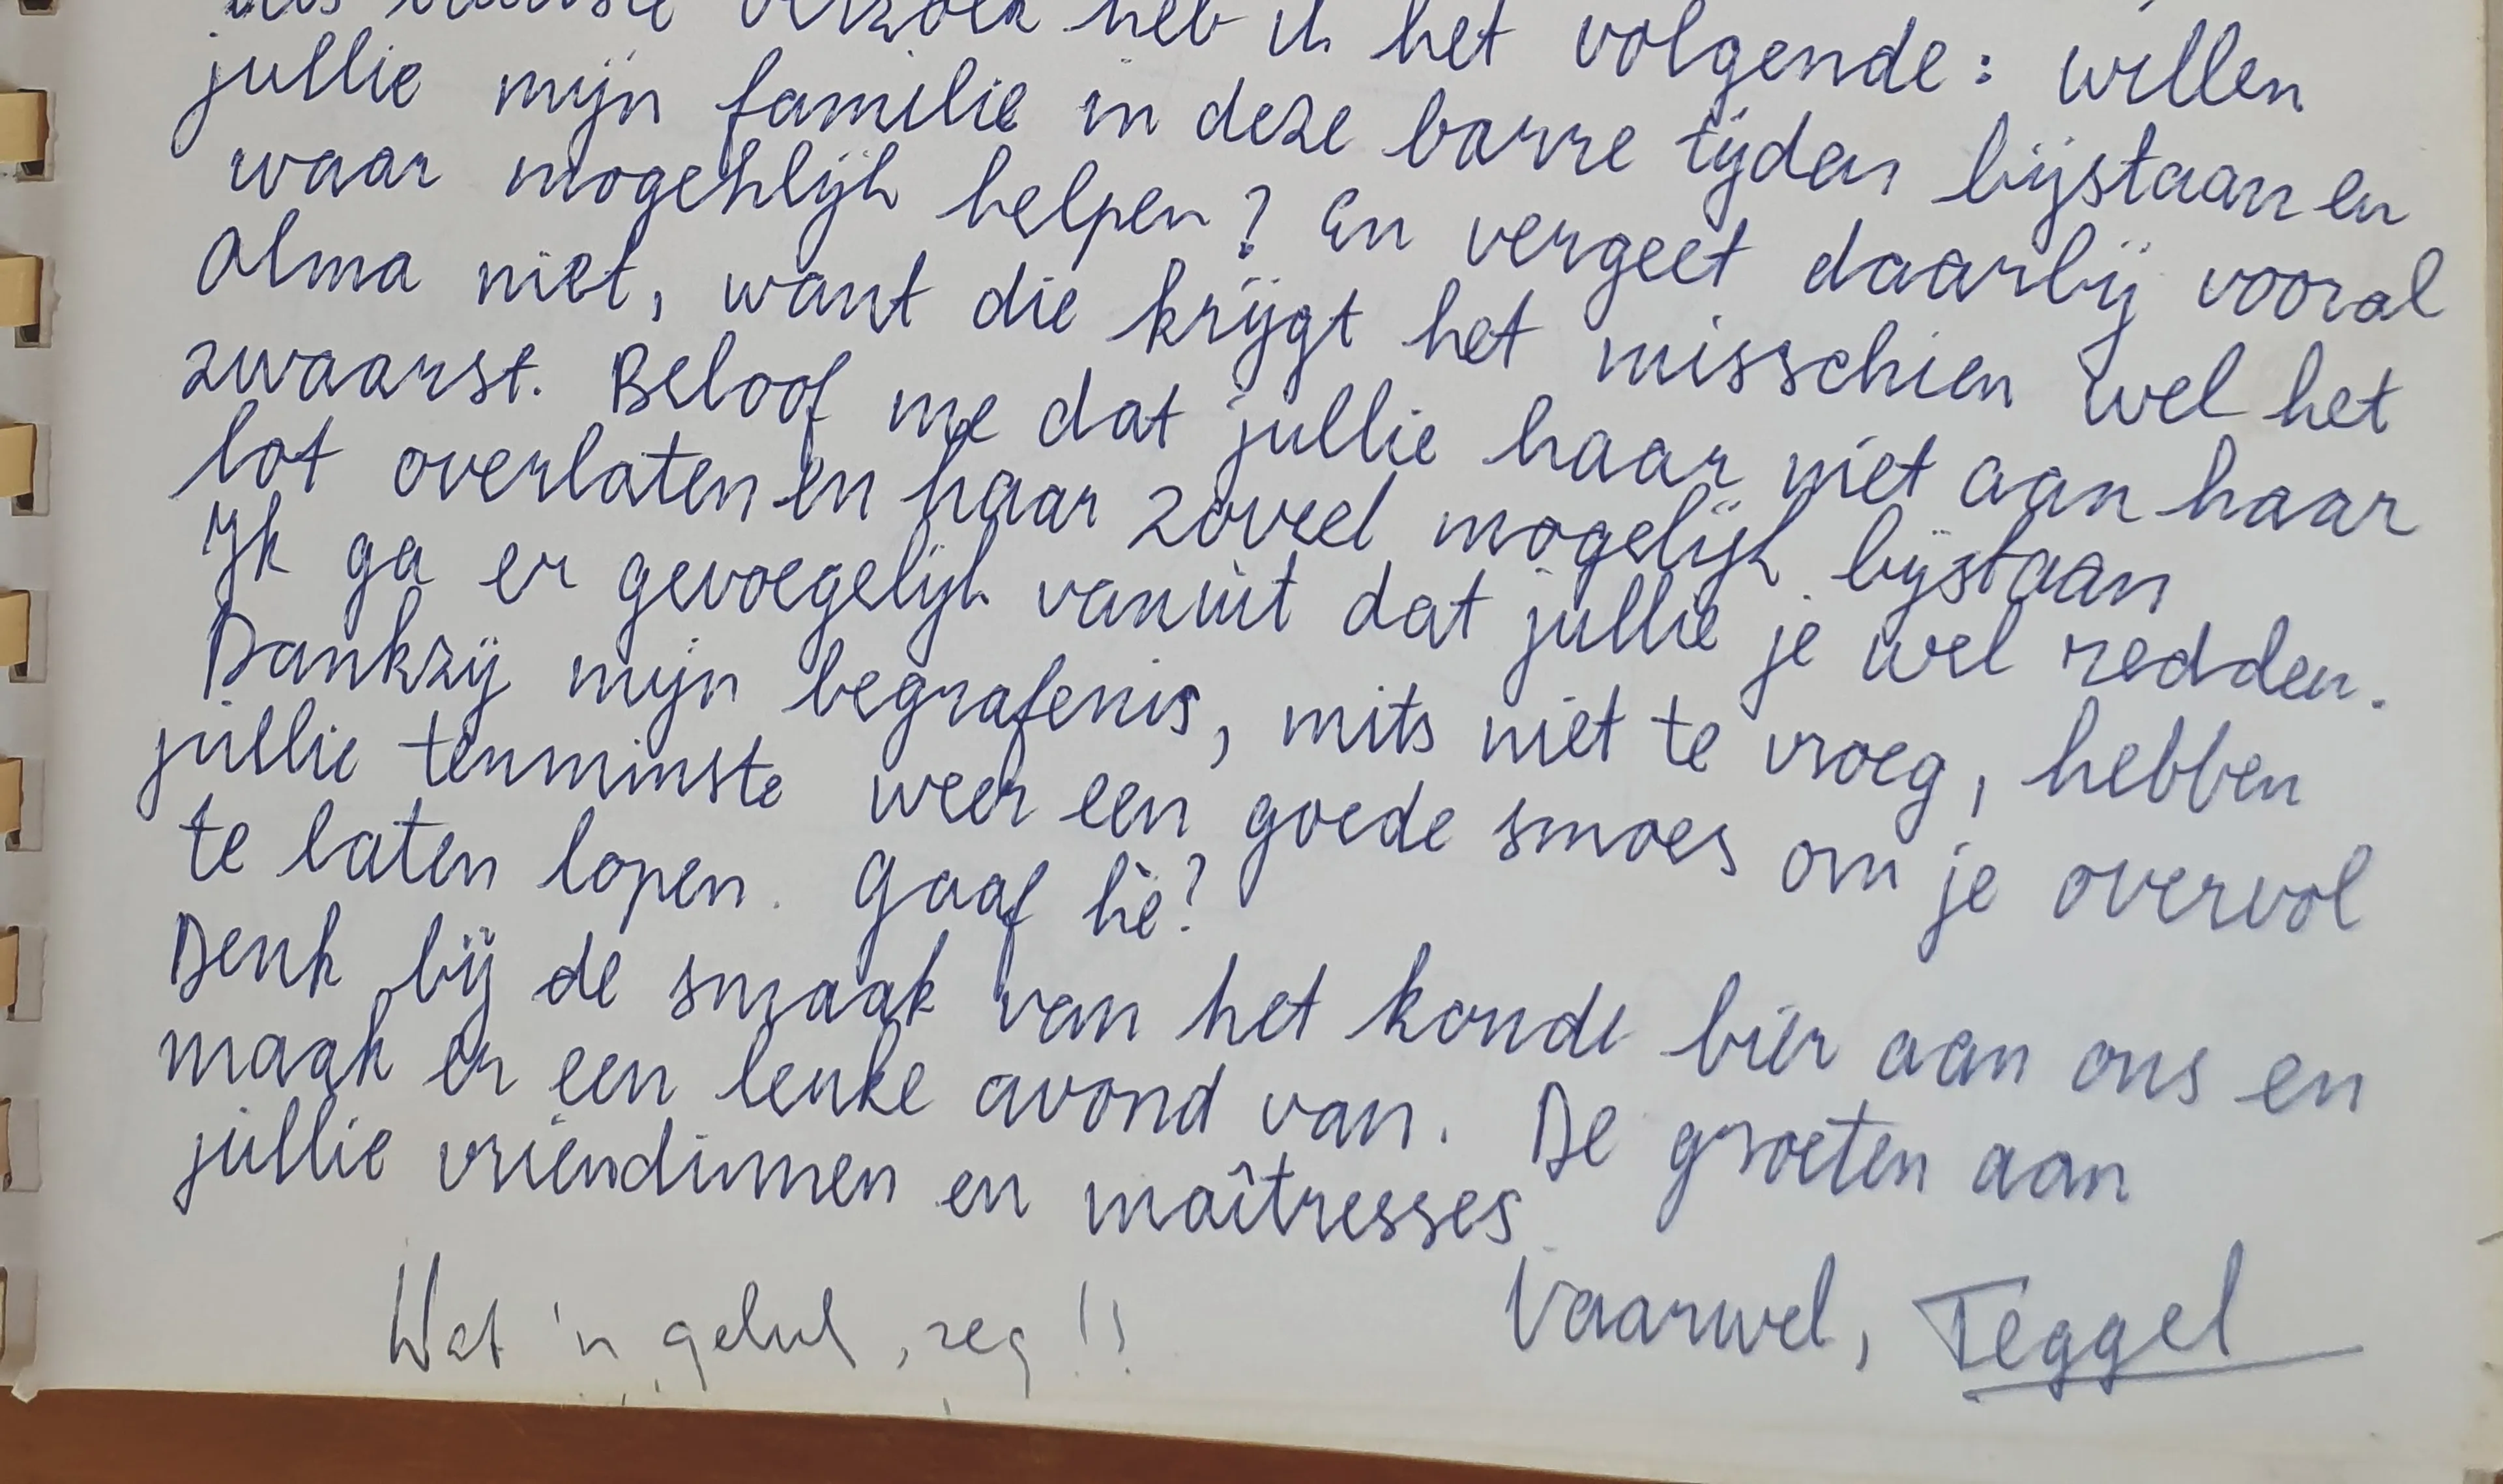 als laatste verzoek heb ik het volgende: willen
jullie mijn familie in deze barre tijden bijstaan en
waar mogehlijk helpen? En vergeet daarbij vooral
Alma niet, want die krijgt het misschien wel het
zwaarst. Beloof me dat jullie haar niet aan haar
lot overlaten en haar zoveel mogelijk bijstaan
Ik ga er gevoegelijk vanuit dat jullie je wel redden.
Dankzij mijn begrafenis, mits niet te vroeg, hebben
jullie tenminste weer een goede smoes om je overvol
te laten lopen. Gaaf hè?
Denk bij de smaak van het koude bier aan ons en
maak er een leuke avond van. De groeten aan
jullie vriendinnen en maîtresses.
Vaarwel, Teggel
Wat 'n gelul, zeg!!